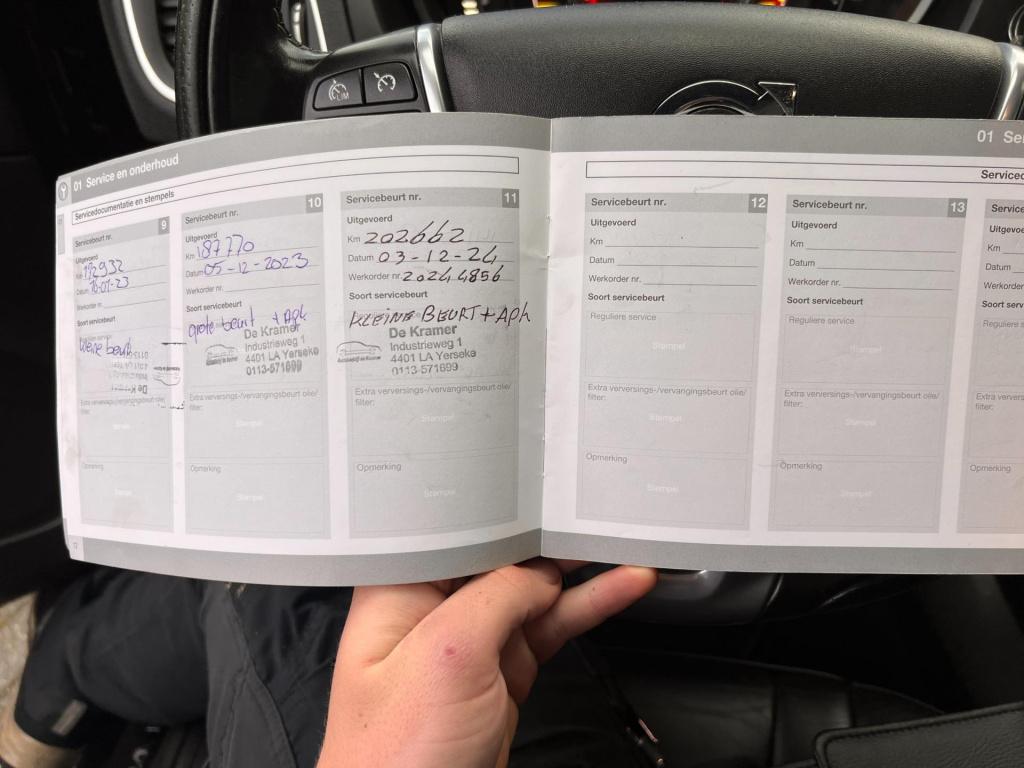 LIM
01 Service en onderhoud
Servicedocumentatie en stempels
Servicebeurt nr. 9
Uitgevoerd
Km 172932
Datum 16-01-23
Werkorder nr.
Soort servicebeurt
kleine beurt
De Kramer
4401 LA Yerseke
Extra verversings-/vervangingsbeurt olie/
filter:
Stempel
Opmerking
Stempel
Servicebeurt nr. 10
Uitgevoerd
Km 187770
Datum 05-12-2023
Werkorder nr.
Soort servicebeurt
grote beurt + Apk
De Kramer
Industrieweg 1
4401 LA Yerseke
0113-571699
Extra verversings-/vervangingsbeurt olie/
filter:
Stempel
Opmerking
Stempel
Servicebeurt nr. 11
Uitgevoerd
Km 202662
Datum 03-12-24
Werkorder nr. 20244856
Soort servicebeurt
KLEINE BEURT + APK
De Kramer
Industrieweg 1
4401 LA Yerseke
0113-571699
Extra verversings-/vervangingsbeurt olie/
filter:
Stempel
Opmerking
Stempel
01 Se
Serviced
Servicebeurt nr. 12
Uitgevoerd
Km
Datum
Werkorder nr.
Soort servicebeurt
Reguliere service
Stempel
Extra verversings-/vervangingsbeurt olie/
filter:
Stempel
Opmerking
Stempel
Servicebeurt nr. 13
Uitgevoerd
Km
Datum
Werkorder nr.
Soort servicebeurt
Reguliere service
Stempel
Extra verversings-/vervangingsbeurt olie/
filter:
Stempel
Opmerking
Stempel
Servicebe
Uitgevoerd
Km
Datum
Werkorder
Soort serv
Reguliere
Extra ververs
filter:
Opmerking